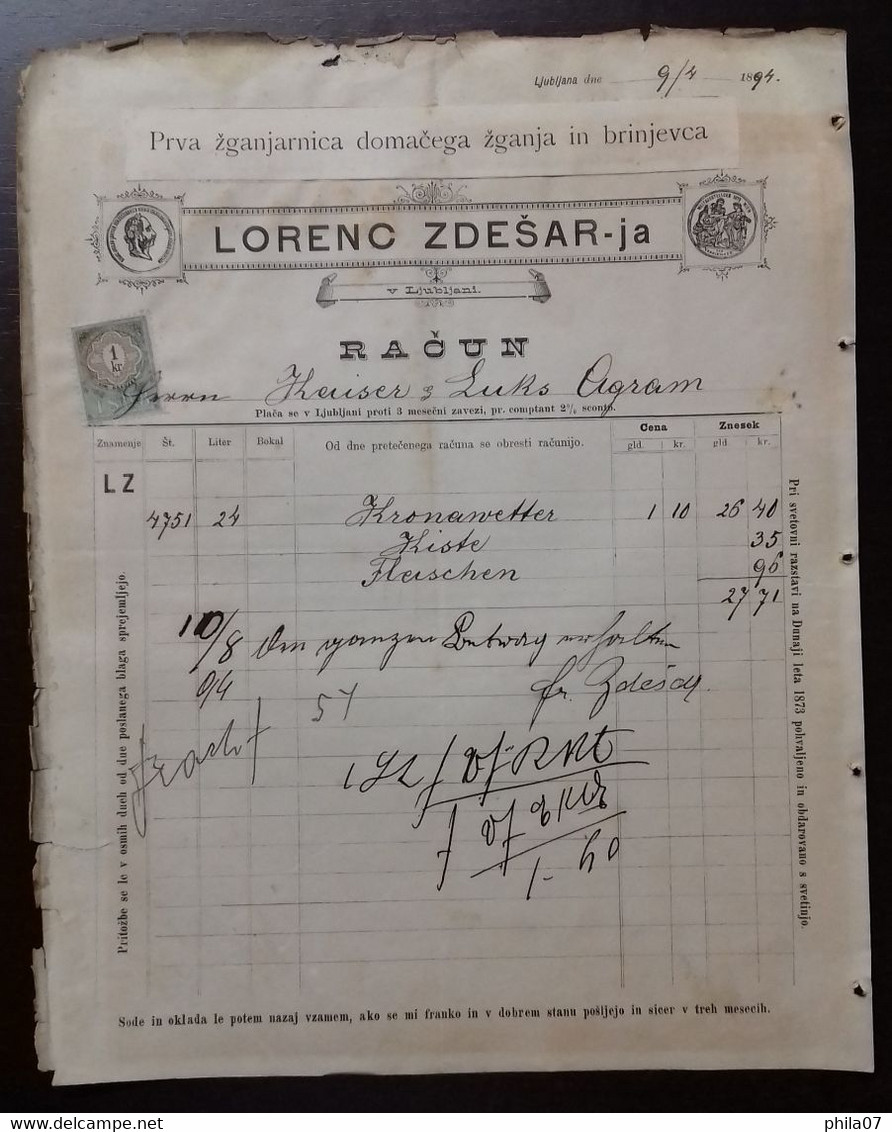 Ljubljana dne 9/4 1894.
Prva žganjarnica domačega žganja in brinjevca
LORENC ZDEŠAR-ja
v Ljubljani.
RAČUN
1 kr
Herrn Kaiser & Luks Agram
Plača se v Ljubljani proti 3 mesečni zavezi, pr. comptant 2% sconto.
Znamenje Št. Liter Bokal Od dne pretečenega računa se obresti računijo. Cena Znesek
gld. kr. gld. kr.
LZ
4751 24 Kronawetter 1 10 26 40
Kiste 35
Flaschen 96
27 71
10/8 Den ganzen Betrag erhalten
94 Zdešar
54
Pritožbe se le v osmih dneh od dne poslanega blaga sprejemljejo.
Pri svetovni razstavi na Dunaji leta 1873 pohvaljeno in obdarovano s svetinjo.
Sode in oklada le potem nazaj vzamem, ako se mi franko in v dobrem stanu pošljejo in sicer v treh mesecih.
delcampe.net
phila07